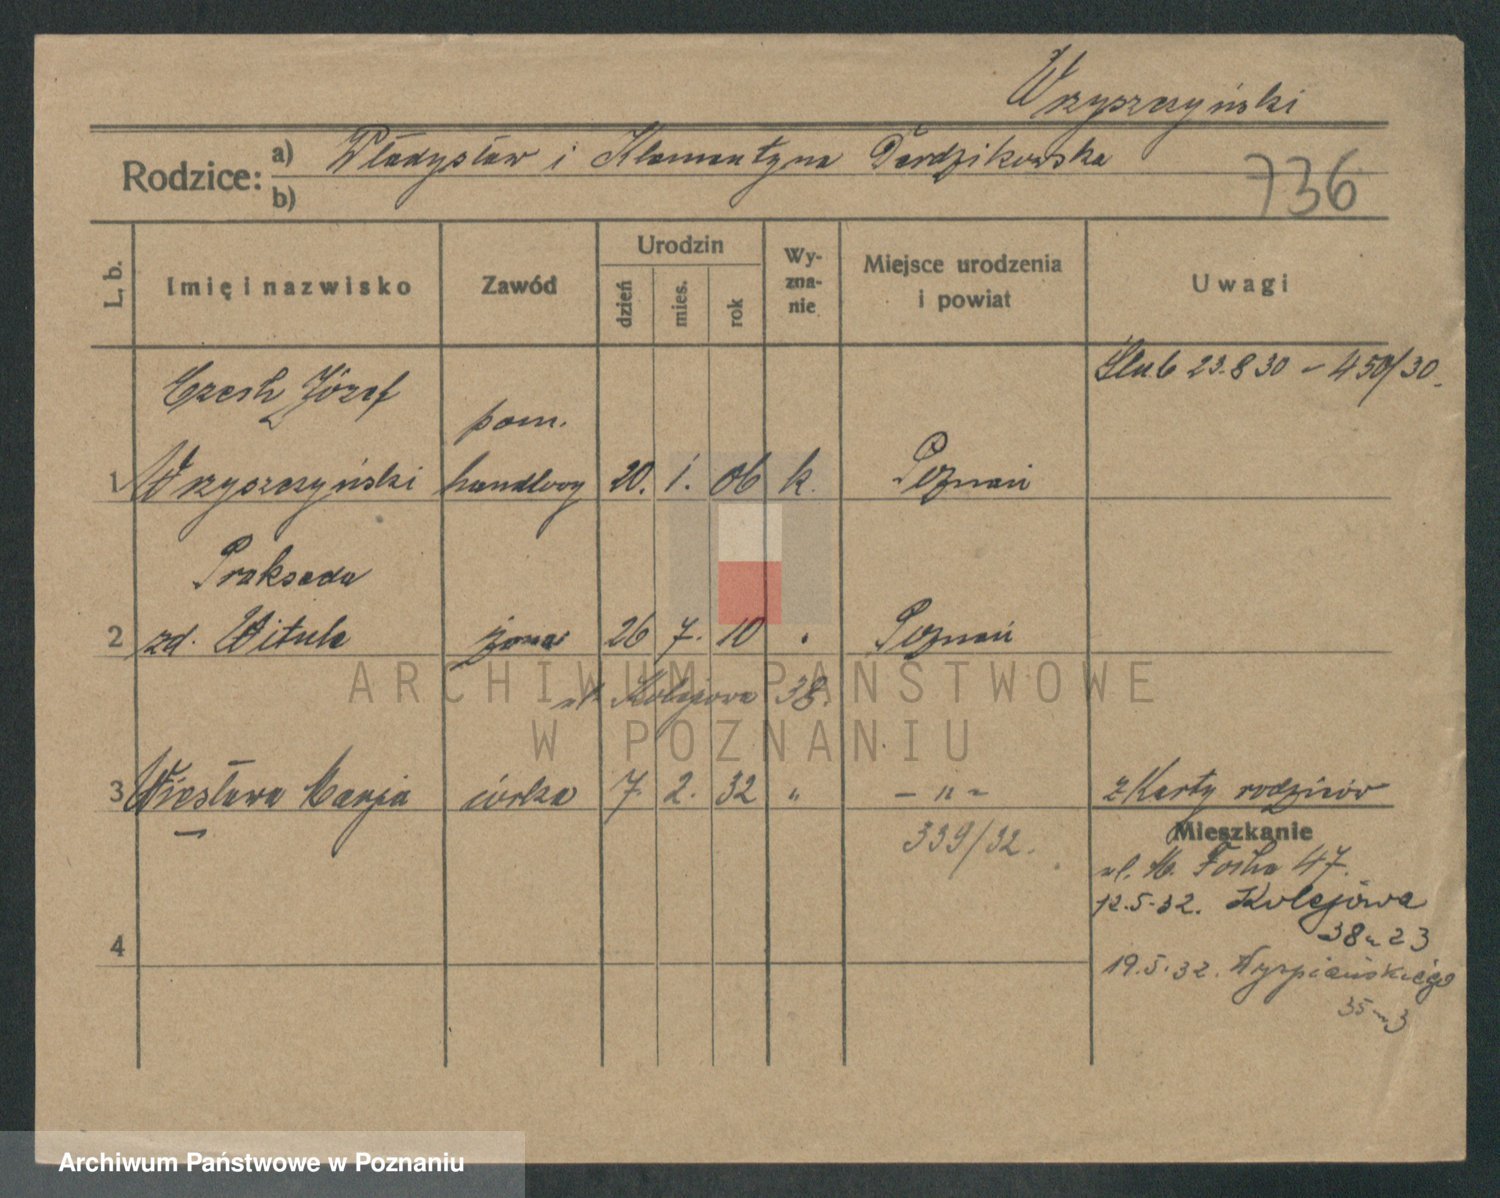 Wrzyszczyński
Rodzice: a) Władysław i Klementyna Dardzikowska
b)
736
L. b.
Imię i nazwisko
Zawód
Urodzin
dzień
mies.
rok
Wy-
zna-
nie
Miejsce urodzenia
i powiat
Uwagi
Ślub 23.8 30 – 450/30.
Czesł. Józef
pom.
1 Wrzyszczyński handlowy 20. 1. 06 k. Poznań
Prakseda
2 zd. Witula żona 26 7. 10 " Poznań
ul. Kolejowa 38.
3 Wiesława Marja córka 7. 2. 32 " – " – z Karty rodziców
339/32.
Mieszkanie
ul. M. Focha 47.
12.5.32. Kolejowa
38 m 23
4
19.5.32. Wyspiańskiego
35 m 3
ARCHIWUM PAŃSTWOWE
W POZNANIU
Archiwum Państwowe w Poznaniu